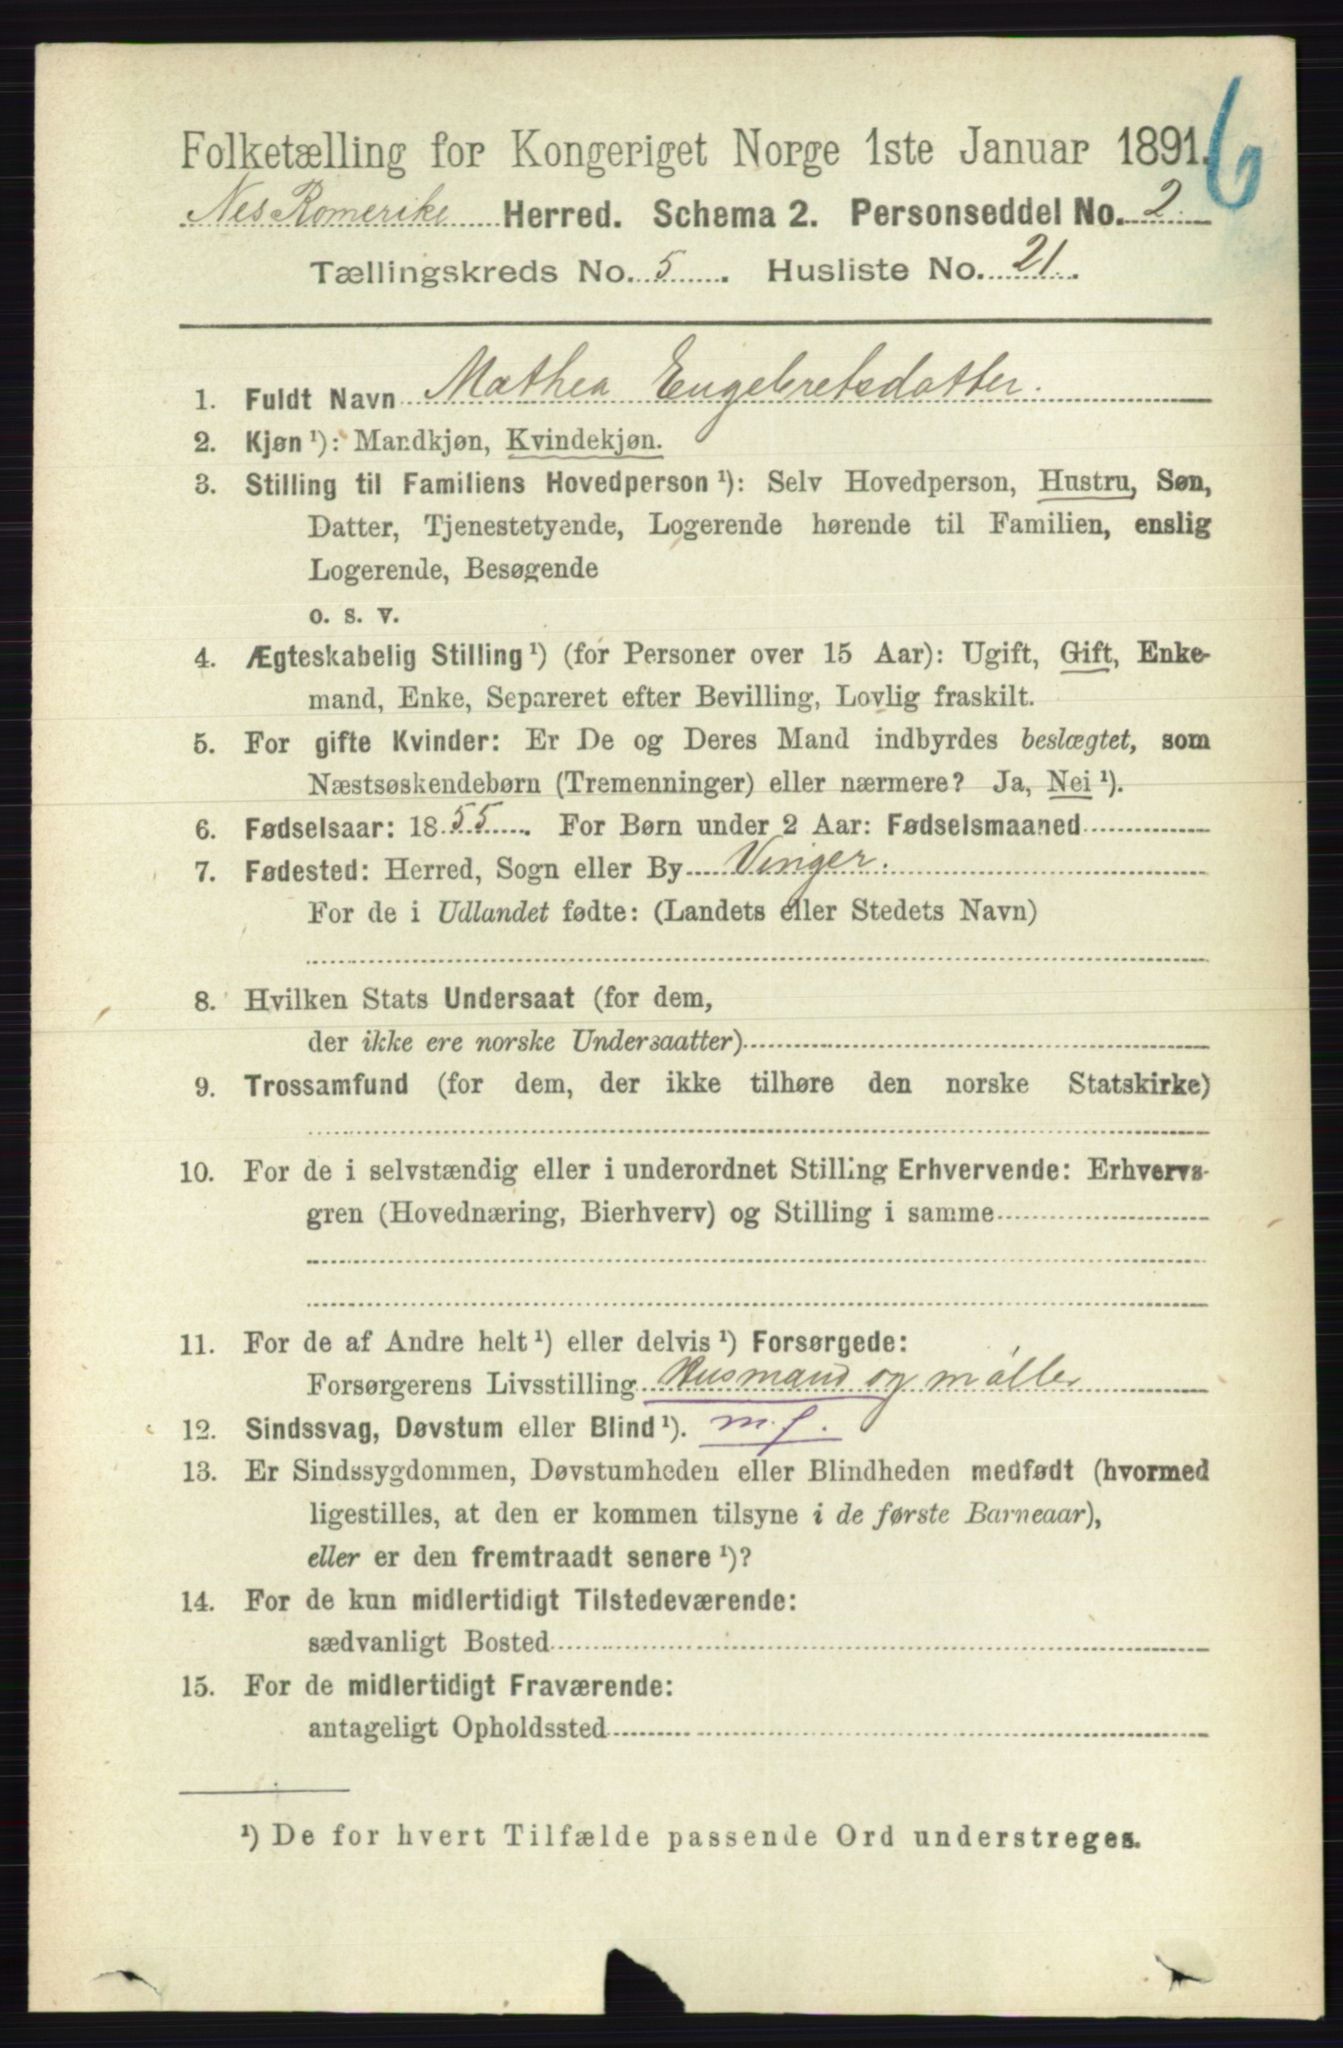 6
Folketælling for Kongeriget Norge 1ste Januar 1891.
Nes Romerike Herred. Schema 2. Personseddel No. 2.
Tællingskreds No. 5. Husliste No. 21.
1. Fuldt Navn Mathea Engebretsdatter.
2. Kjøn ¹): Mandkjøn, Kvindekjøn.
3. Stilling til Familiens Hovedperson ¹): Selv Hovedperson, Hustru, Søn,
Datter, Tjenestetyende, Logerende hørende til Familien, enslig
Logerende, Besøgende
o. s. v.
4. Ægteskabelig Stilling ¹) (for Personer over 15 Aar): Ugift, Gift, Enke-
mand, Enke, Separeret efter Bevilling, Lovlig fraskilt.
5. For gifte Kvinder: Er De og Deres Mand indbyrdes beslægtet, som
Næstsøskendebørn (Tremenninger) eller nærmere? Ja, Nei ¹).
6. Fødselsaar: 1855. For Børn under 2 Aar: Fødselsmaaned
7. Fødested: Herred, Sogn eller By Vinger.
For de i Udlandet fødte: (Landets eller Stedets Navn)
8. Hvilken Stats Undersaat (for dem,
der ikke ere norske Undersaatter)
9. Trossamfund (for dem, der ikke tilhøre den norske Statskirke)
10. For de i selvstændig eller i underordnet Stilling Erhvervende: Erhvervs-
gren (Hovednæring, Bierhverv) og Stilling i samme
11. For de af Andre helt ¹) eller delvis ¹) Forsørgede:
Forsørgerens Livsstilling Husmand og møller
12. Sindssvag, Døvstum eller Blind ¹). m. f.
13. Er Sindssygdommen, Døvstumheden eller Blindheden medfødt (hvormed
ligestilles, at den er kommen tilsyne i de første Barneaar),
eller er den fremtraadt senere ¹)?
14. For de kun midlertidigt Tilstedeværende:
sædvanligt Bosted
15. For de midlertidigt Fraværende:
antageligt Opholdssted
¹) De for hvert Tilfælde passende Ord understreges.